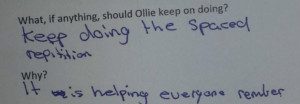 What, if anything, should Ollie keep on doing?
keep doing the spaced
repitition
Why?
It is helping everyone rember